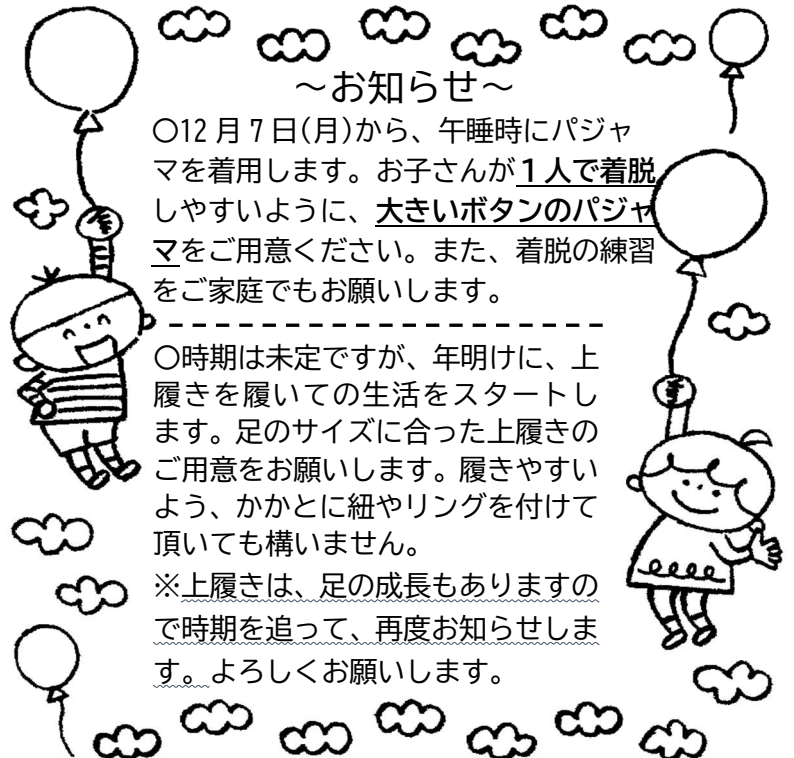 ～お知らせ～
〇12月7日(月)から、午睡時にパジャ
マを着用します。お子さんが１人で着脱
しやすいように、大きいボタンのパジャ
マをご用意ください。また、着脱の練習
をご家庭でもお願いします。
--------------------
〇時期は未定ですが、年明けに、上
履きを履いての生活をスタートし
ます。足のサイズに合った上履きの
ご用意をお願いします。履きやすい
よう、かかとに紐やリングを付けて
頂いても構いません。
※上履きは、足の成長もありますの
で時期を追って、再度お知らせしま
す。よろしくお願いします。